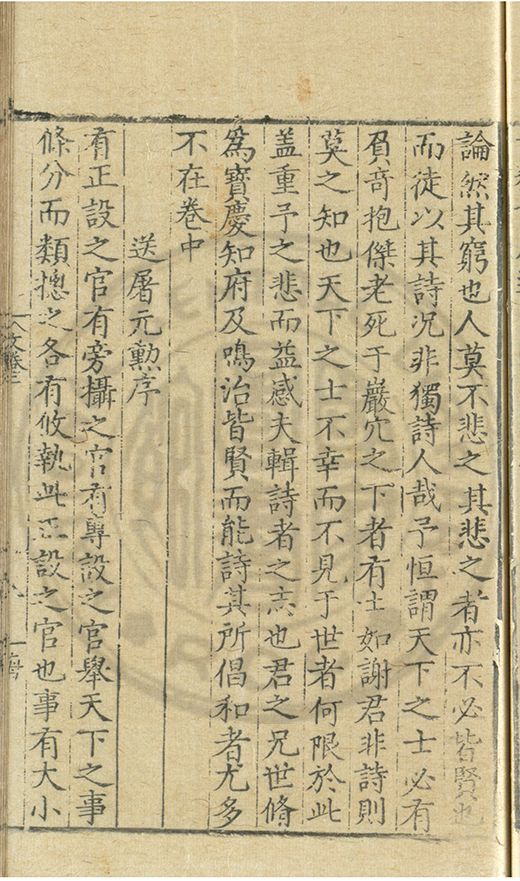 論然其窮也人莫不悲之其悲之者亦不必皆賢也
而徒以其詩况非獨詩人哉予恒謂天下之士必有
負奇抱傑老死于巖穴之下者有士如謝君非詩則
莫之知也天下之士不幸而不見于世者何限於此
盖重予之悲而益感夫輯詩者之志也君之兄世脩
為寶慶知府及鳴治皆賢而能詩其所倡和者尤多
不在卷中
送屠元勲序
有正設之官有旁攝之官有專設之官舉天下之事
條分而類摠之各有攸執此正設之官也事有大小
文卷三